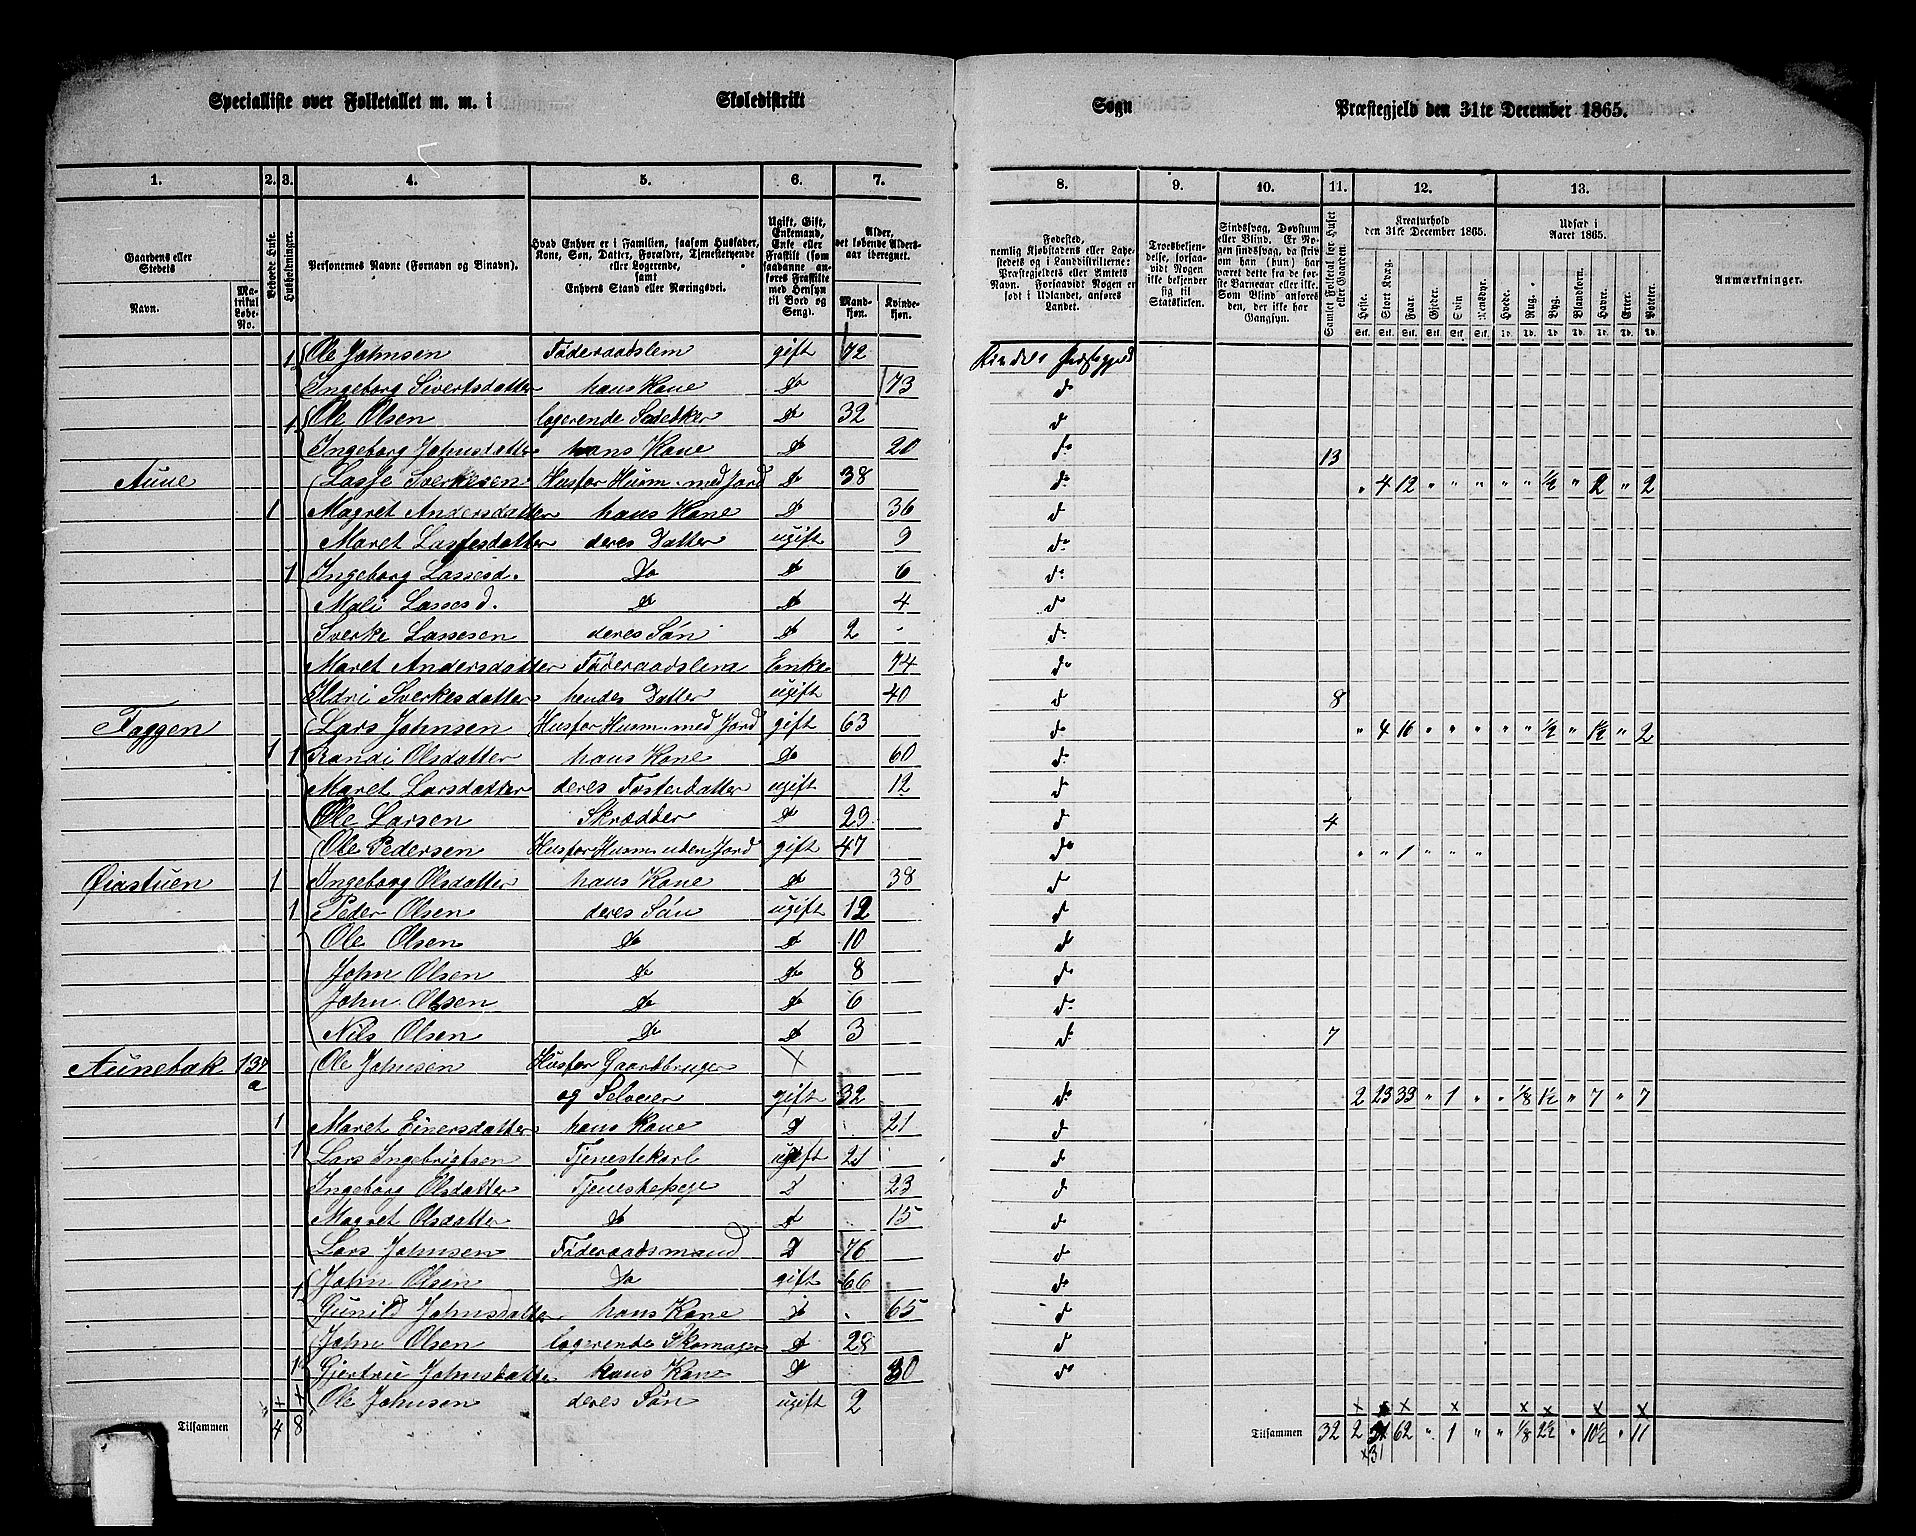 Specialliste over Folketallet m. m. i Skoledistrikt Sogn Præstegjeld den 31te December 1865.
1. 2. 3. 4. 5. 6. 7. 8. 9. 10. 11. 12. 13.
Gaardens eller Stedets Navn. Matrikul Løbe-No. Beboede Huse. Husholdninger. Personernes Navne (Fornavn og Binavn). Hvad Enhver er i Familien, saasom Husfader, Kone, Søn, Datter, Forældre, Tjenestetyende eller Logerende, samt Enhvers Stand eller Næringsvei. Ugift, Gift, Enkemand, Enke eller Fraskilt (som saadanne anføres Fraskilte med Hensyn til Bord og Seng). Alder, det løbende Aldersaar iberegnet. Mandkjøn. Kvindekjøn.
Fødested, nemlig Kjøbstadens eller Ladestedets og i Landdistrikterne: Præstegjeldets eller Amtets Navn. Forsaavidt Nogen er født i Udlandet, anføres Landet. Troesbekjendelse, forsaavidt Nogen ikke bekjender sig til Statskirken. Sindssvag, Døvstum eller Blind. Er Nogen sindssvag, da tilføies om han (hun) har været dette fra de første Barneaar eller ikke. Som Blind anføres den, der ikke har Gangsyn. Samlet Folketal for Huset eller Gaarden. Kreaturhold den 31te December 1865. Udsæd i Aaret 1865. Anmærkninger.
Heste. Stort Kvæg. Faar. Gjeder. Svin. Rensdyr. Hvede. Rug. Byg. Blandkorn. Havre. Erter. Poteter.
Stk. Stk. Stk. Stk. Stk. Stk. Td. Td. Td. Td. Td. Td. Td.
1 Ole Johnsen Føderaadslem gift 72
Ingeborg Sivertsdatter hans Kone Do 73 do
1 Ole Olsen logerende Do 32 do
Ingeborg Johnsdatter hans Kone Do 20 do 13
Aune Lasse Sverkesen Husfor Husm. med Jord Do 38 do " 4 12 " " " " " ½ " 2 " 2
1 Magret Andersdatter hans Kone Do 36 do
Maret Lassesdatter deres Datter ugift 9 do
1 Ingeborg Lassesd. Do Do 6 do
Mali Lassesd. Do Do 4 do
Sverke Lassesen deres Søn Do 2 do
Maret Andersdatter Føderaadslem Enke 74 do
Ildri Sverkesdatter hendes Datter ugift 40 do 8
Foggen Lars Johnsen Husfor Husm. med Jord gift 63 do " 4 16 " " " " " ½ " 1½ " 2
1 1 Randi Olsdatter hans Kone Do 60 do
Maret Larsdatter deres Fosterdatter ugift 12 do
Ole Larsen Skrædder Do 29 do 4
Ole Pedersen Husfor Husm. uden Jord gift 47 do " " 1 " " "
Øiastuen 1 Ingeborg Olsdatter hans Kone Do 38 do
1 Peder Olsen deres Søn ugift 12 do
Ole Olsen Do Do 10 do
John Olsen Do Do 8 do
John Olsen Do Do 6 do
Nils Olsen Do Do 3 do 7
Aunebak 137 Ole Johnsen Husfor Gaardbruger X
a og Selveier gift 32 do 2 23 33 " 1 " " ⅛ 1½ " 7 " 7
1 Maret Einersdatter hans Kone D 21 do
1 Lars Ingebrigtsen Tjenestekarl ugift 21 do
Ingeborg Olsdatter Tjenestepige D 23 do
Magret Olsdatter Do D 15 do
Lars Johnsen Føderaadsmand D 76 do
1 John Olsen Do gift 66 do
Gunild Johnsdatter hans Kone D 65 do
John Olsen logerende Skomager D 28 do
1 Gjertru Johnsdatter hans Kone D 30 do
Ole Johnsen deres Søn ugift 2
x x x x x x x x x x
Tilsammen 4 8 Tilsammen 32 2 31 62 " 1 " " ⅛ 2½ " 10½ " 11
x31